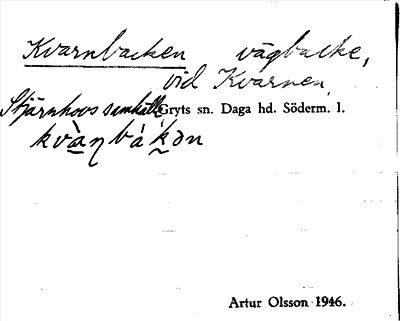 Kvarnbacken vägbacke,
vid Kvarnen,
Stjärnhovs samhälle Gryts sn. Daga hd. Söderm. l.
kvàɳbákən
Artur Olsson 1946.